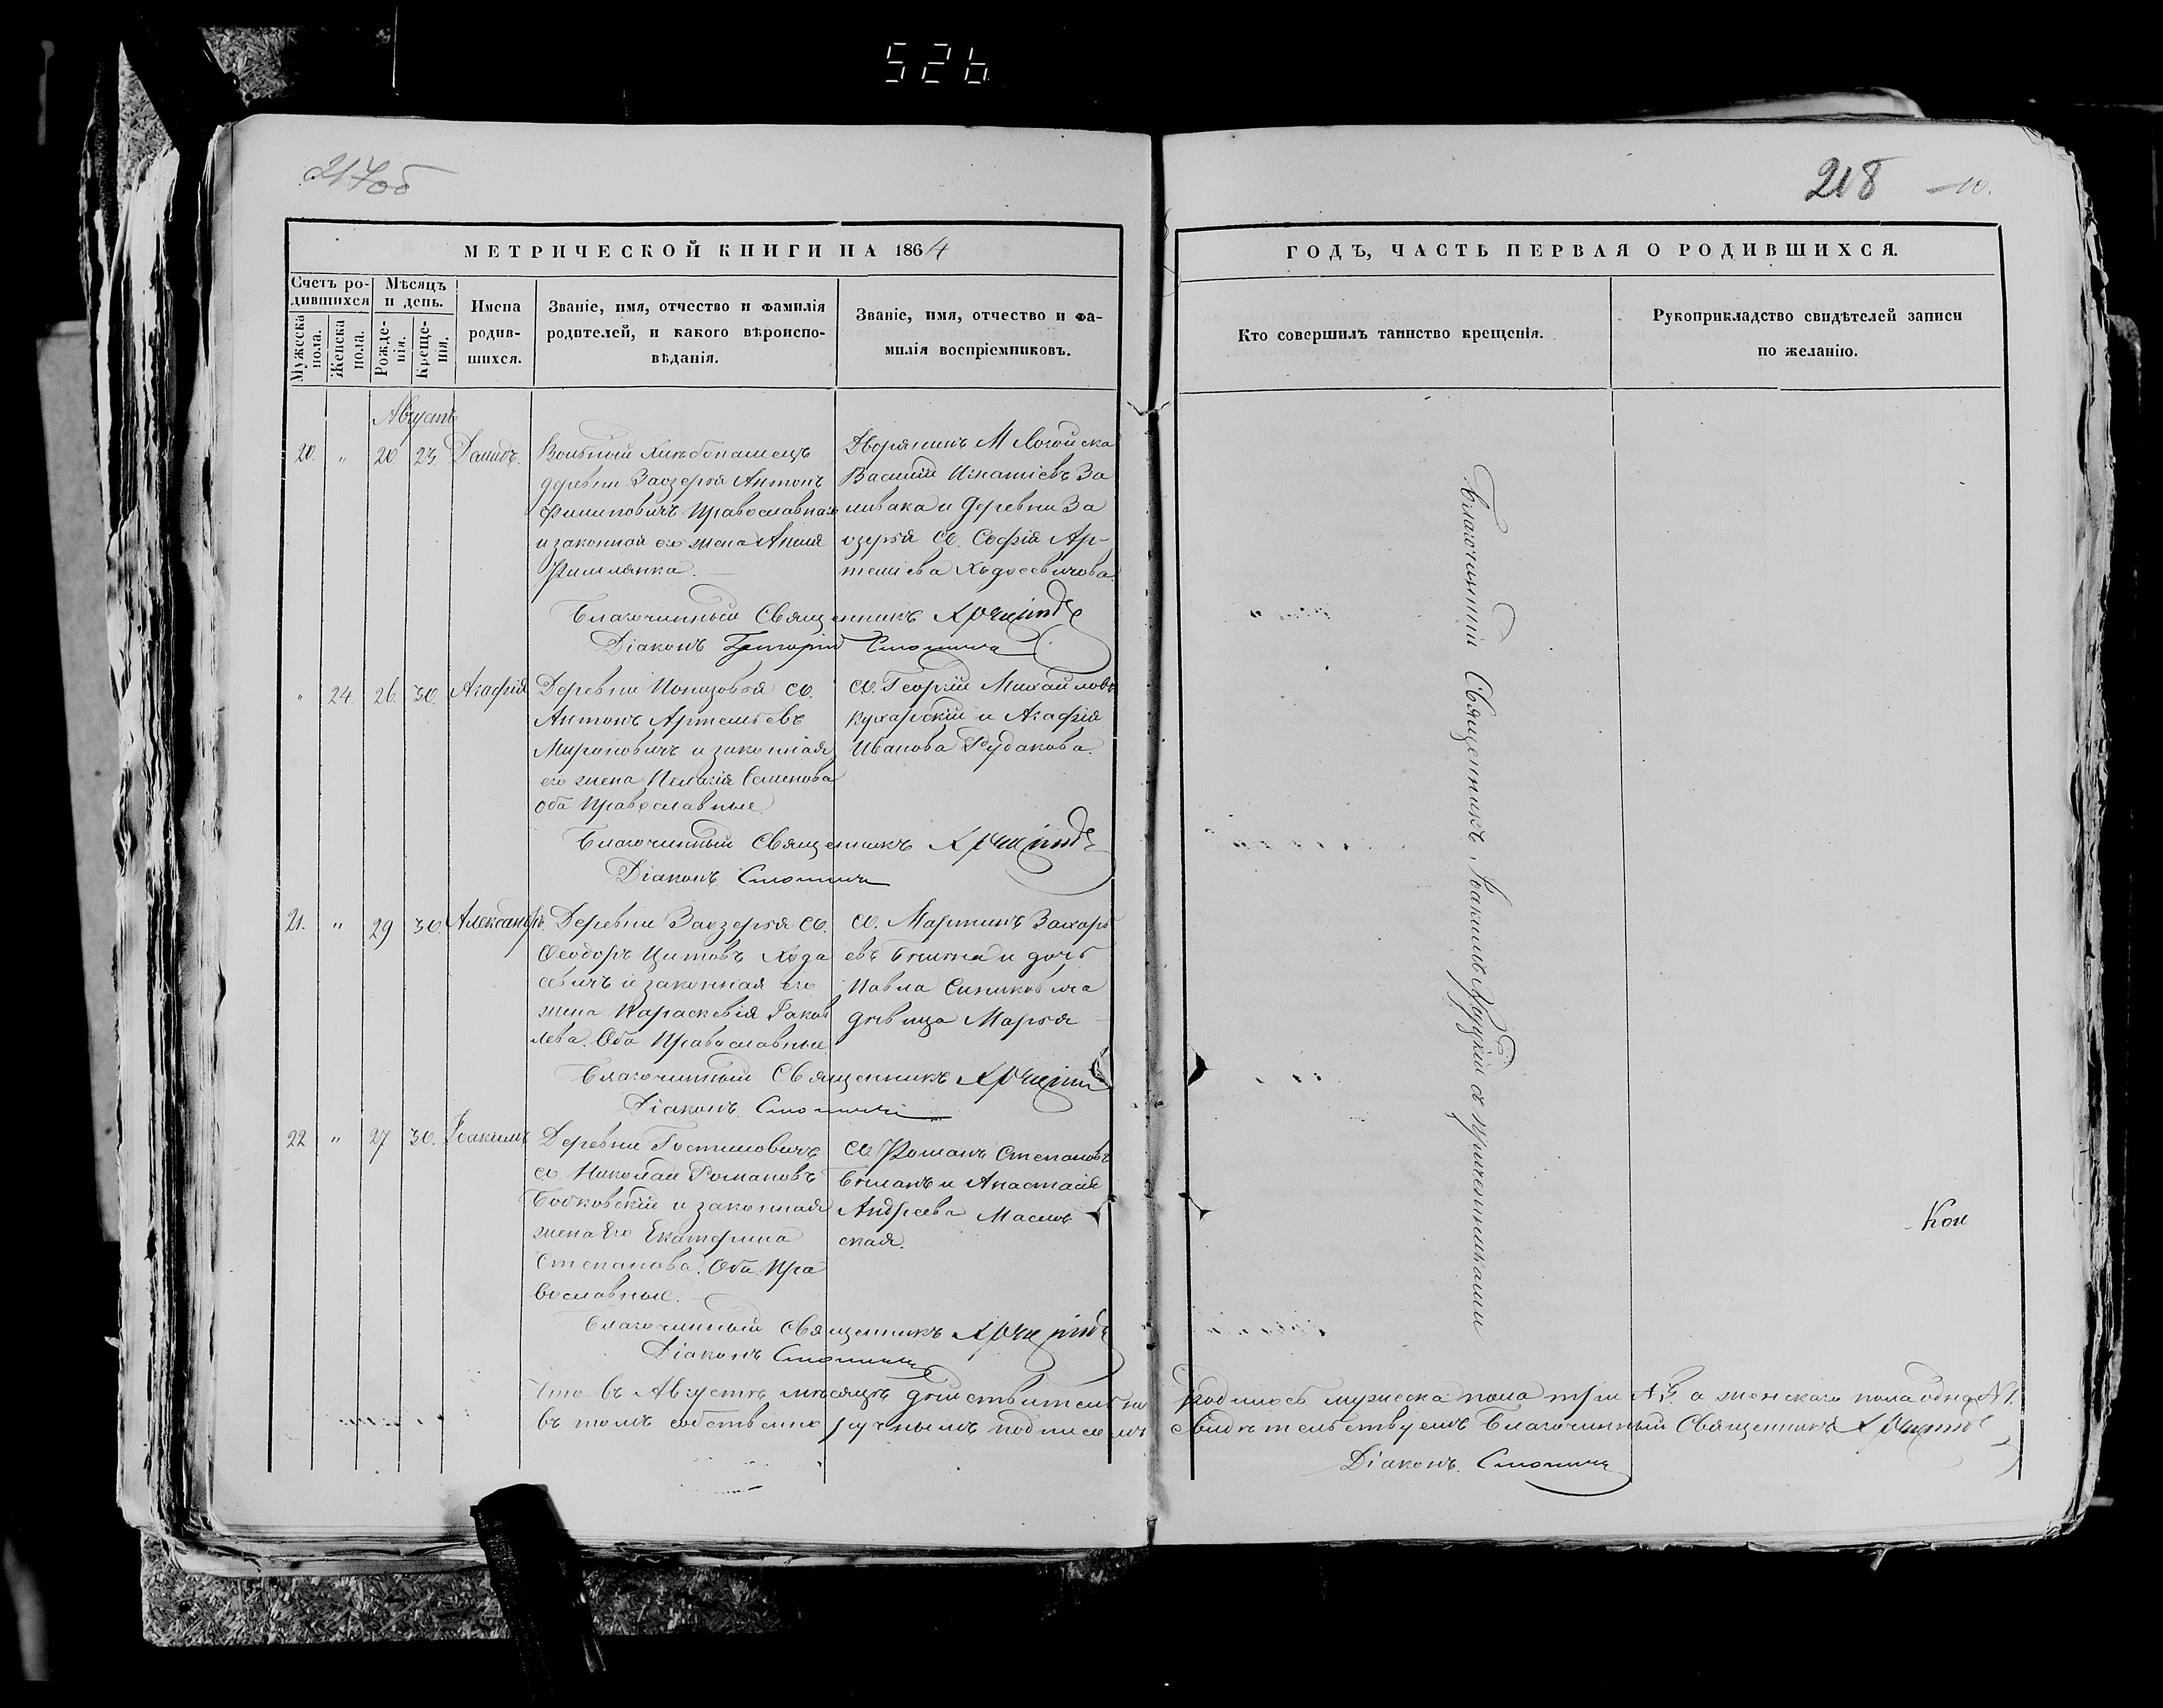 526
217об
218
10.
МЕТРИЧЕСКОЙ КНИГИ НА 1864
ГОДЪ, ЧАСТЬ ПЕРВАЯ О РОДИВШИХСЯ.
Счетъ ро-
дившихся
Мужеска пола.
Женска пола.
Мѣсяцъ
и день.
Рожде-
нія.
Креще-
нія.
Имена
родив-
шихся.
Званіе, имя, отчество и фамилія
родителей, и какого вѣроиспо-
вѣданія.
Званіе, имя, отчество и фа-
милія воспріемниковъ.
Кто совершилъ таинство крещенія.
Рукоприкладство свидѣтелей записи
по желанію.
Августъ
20. " 20. 23. Давидъ.
Вольный Хлѣбопашецъ
деревни Заозерья Антонъ
Филиповичъ Православнаго
и законной его жена Анеля
Римлянка.
Дворянинъ М Логойска
Василій Игнатіевъ За
ливака и деревни За
озерья Софія Ар-
теміева
Благочинный Священникъ
Діаконъ Григорій
" 24. 26. 30. Агафія
Деревни Понизовья
Антонъ Артемьевъ
Мироновичъ и законная
его жена Пелагія Семенова
оба Православные
Георгій Михайловъ
Кухарскій и Агафія
Иванова Рудакова.
Благочинный Священникъ
Діаконъ
21. " 29 30. Александръ
Деревни Заозерья
Ѳеодоръ Титовъ Хода
севичъ и законная его
жена Параскевія Іаков
лева. Оба Православные
Мартинъ Захарь
евъ и дочь
Павла Синковича
дѣвица Марья
Благочинный Священникъ
Діаконъ
22 " 27 30. Іоакимъ
Деревни Гостиловичъ
Николай Романовъ
Бобковскій и законная
жена Его Екатерина
Степанова. Оба Пра
вославные.
Романъ Степановъ
и Анастасія
Андреева Маслов
ская.
Благочинный Священникъ
Діаконъ
Благочинный Священникъ Іоакимъ Хруцкій съ причетниками
Кон
Что въ Августѣ мѣсяцѣ дѣйствительно родилось мужеска пола три №3. а женскаго пола одна №1.
въ томъ собственно ручнымъ подписомъ свидѣтельствуемъ Благочинный Священникъ
Діаконъ